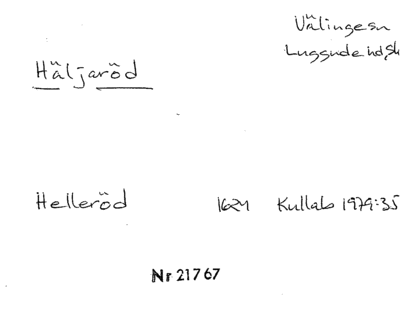 Välinge sn
Luggude hd, Sk
Häljaröd
Helleröd 1624 Kullabo 1979:35
Nr 21767